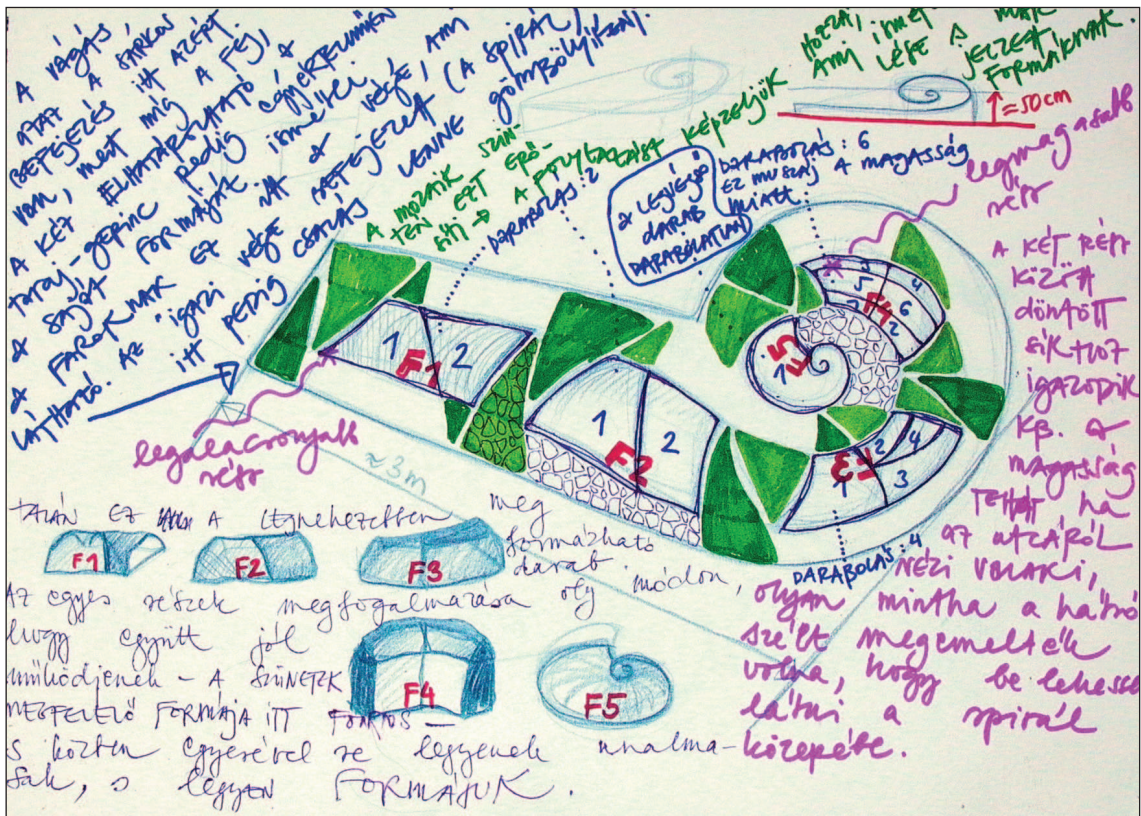 A VÁGÁS,
ATAZ A SARKOS
BEFEJEZÉS ITT AZÉRT
VAN, MERT MÍG A FEJ,
A KÉT ELHATÁROLHATÓ &
TARAJ-GERINC PEDIG EGYÉRTELMŰEN
A SAJÁT FORMÁJÁT ISMÉTLI, AMI
A FAROKNAK EZ ITT A VÉGE,
LÁTHATÓ. AZ IGAZI VÉGE BEFEJEZETT (A SPIRÁL),
ITT PEDIG CSALÁS LENNE GÖMBÖLYÍTENI.
A MOZAIK SZIN-
TÉN EZT ERŐ-
SÍTI → A FOLYTATÁST KÉPZELJÜK
HOZZÁ,
AMI ISMÉT
LÉSE A MÁR
JELZETT
FORMÁKNAK.
≈50cm
DARABOLÁS: 2
A LEGVÉGSŐ
DARAB
DARABOLATLAN
DARABOLÁS: 6
EZ MUSZÁJ A MAGASSÁG
MIATT
legmagasabb
rész
1 2
F1
1 2
F2
1 2 3 4
F3
2 3 4 5 6
F4
1
F5
legalacsonyabb
rész
≈3m
DARABOLÁS: 4
A KÉT RÉSZ
KÖZÖTT
DÖNTÖTT
SÍKHOZ
IGAZODIK
KB. A
MAGASSÁG
TEHÁT ha
AZ UTCÁRÓL
NÉZI VALAKI,
olyan mintha a hátsó
szélt megemelték
volna, hogy be lehessen
látni a spirál
közepébe.
TALÁN EZ A legnehezebben meg
formázható
darab.
F1 F2 F3
AZ egyes részek megfogalmazása oly módon,
hogy együtt jól
működjenek – A SZÜNETEK
MEGFELELŐ FORMÁJA ITT FONTOS –
s közben egyesével se legyenek unalma-
sak, s legyen FORMÁJUK.
F4 F5